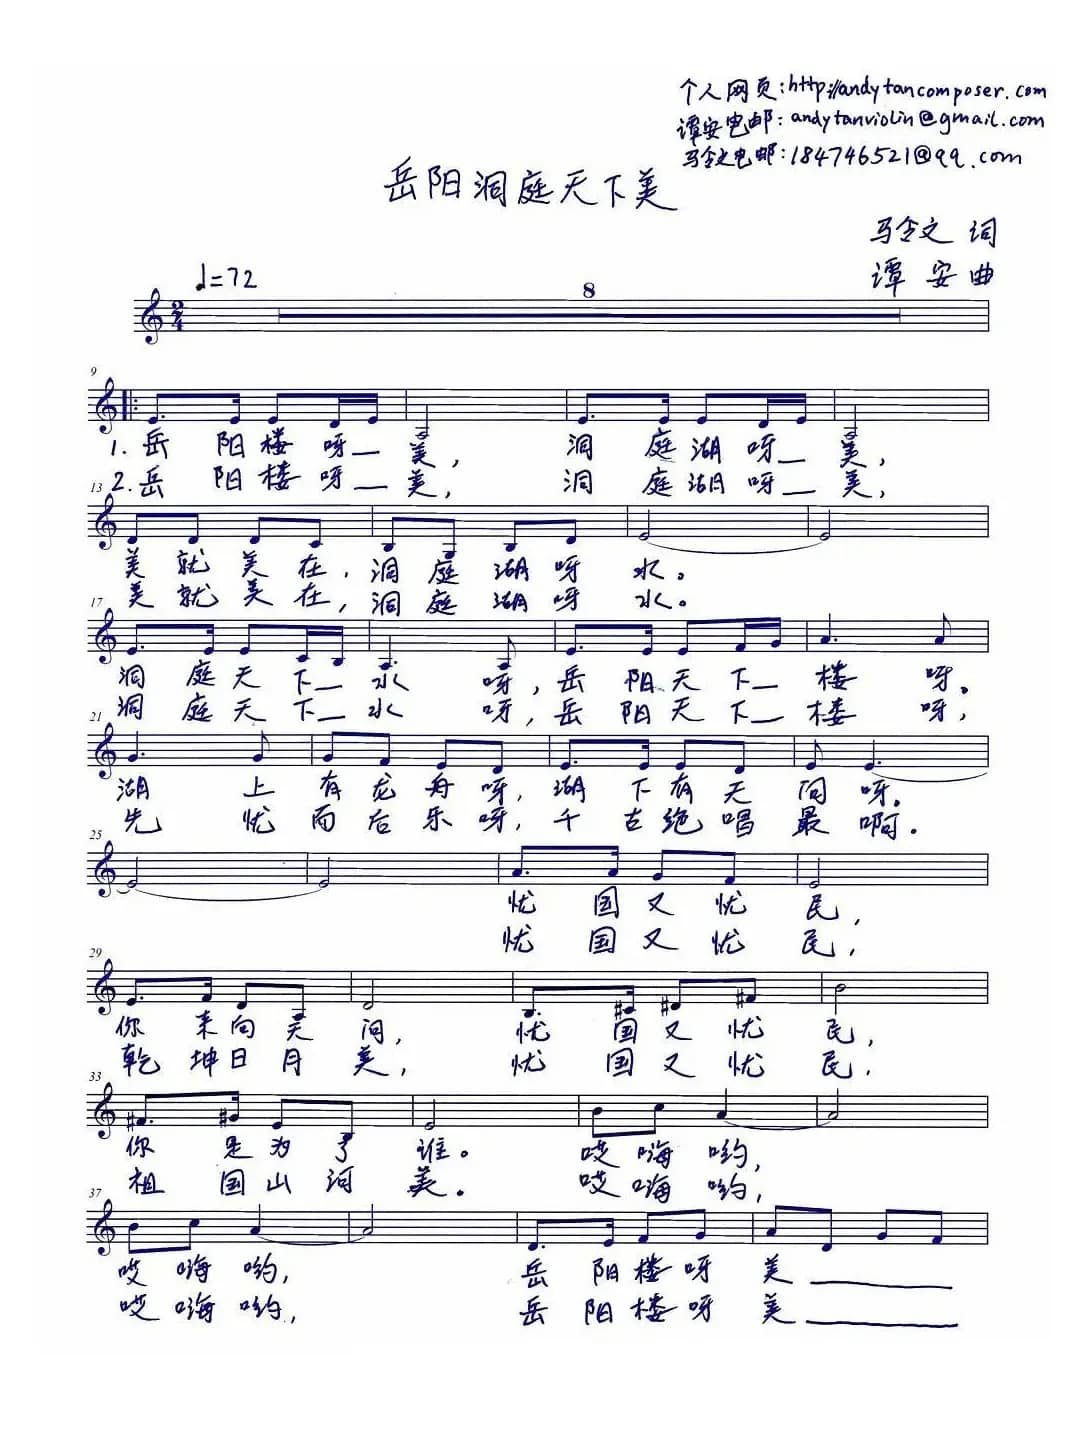 个人网页:http://andytancomposer.com
谭安电邮:andytanviolin@gmail.com
马令文电邮:184746521@qq.com
岳阳洞庭天下美
马令文 词
♩=72
谭安曲
8
9
1.岳阳楼呀_美,洞庭湖呀_美,
2.岳阳楼呀_美,洞庭湖呀_美,
13
美就美在,洞庭湖呀水。
美就美在,洞庭湖呀水。
17
洞庭天下_水呀,岳阳天下_楼呀。
洞庭天下_水呀,岳阳天下_楼呀,
21
湖上有龙舟呀,湖下有天问呀。
先忧而后乐呀,千古绝唱最啊。
25
忧国又忧民,
忧国又忧民,
29
你来向天问,忧国又忧民,
乾坤日月美,忧国又忧民,
33
你是为了谁。哎嗨哟,
祖国山河美。哎嗨哟,
37
哎嗨哟,岳阳楼呀美____
哎嗨哟,岳阳楼呀美____